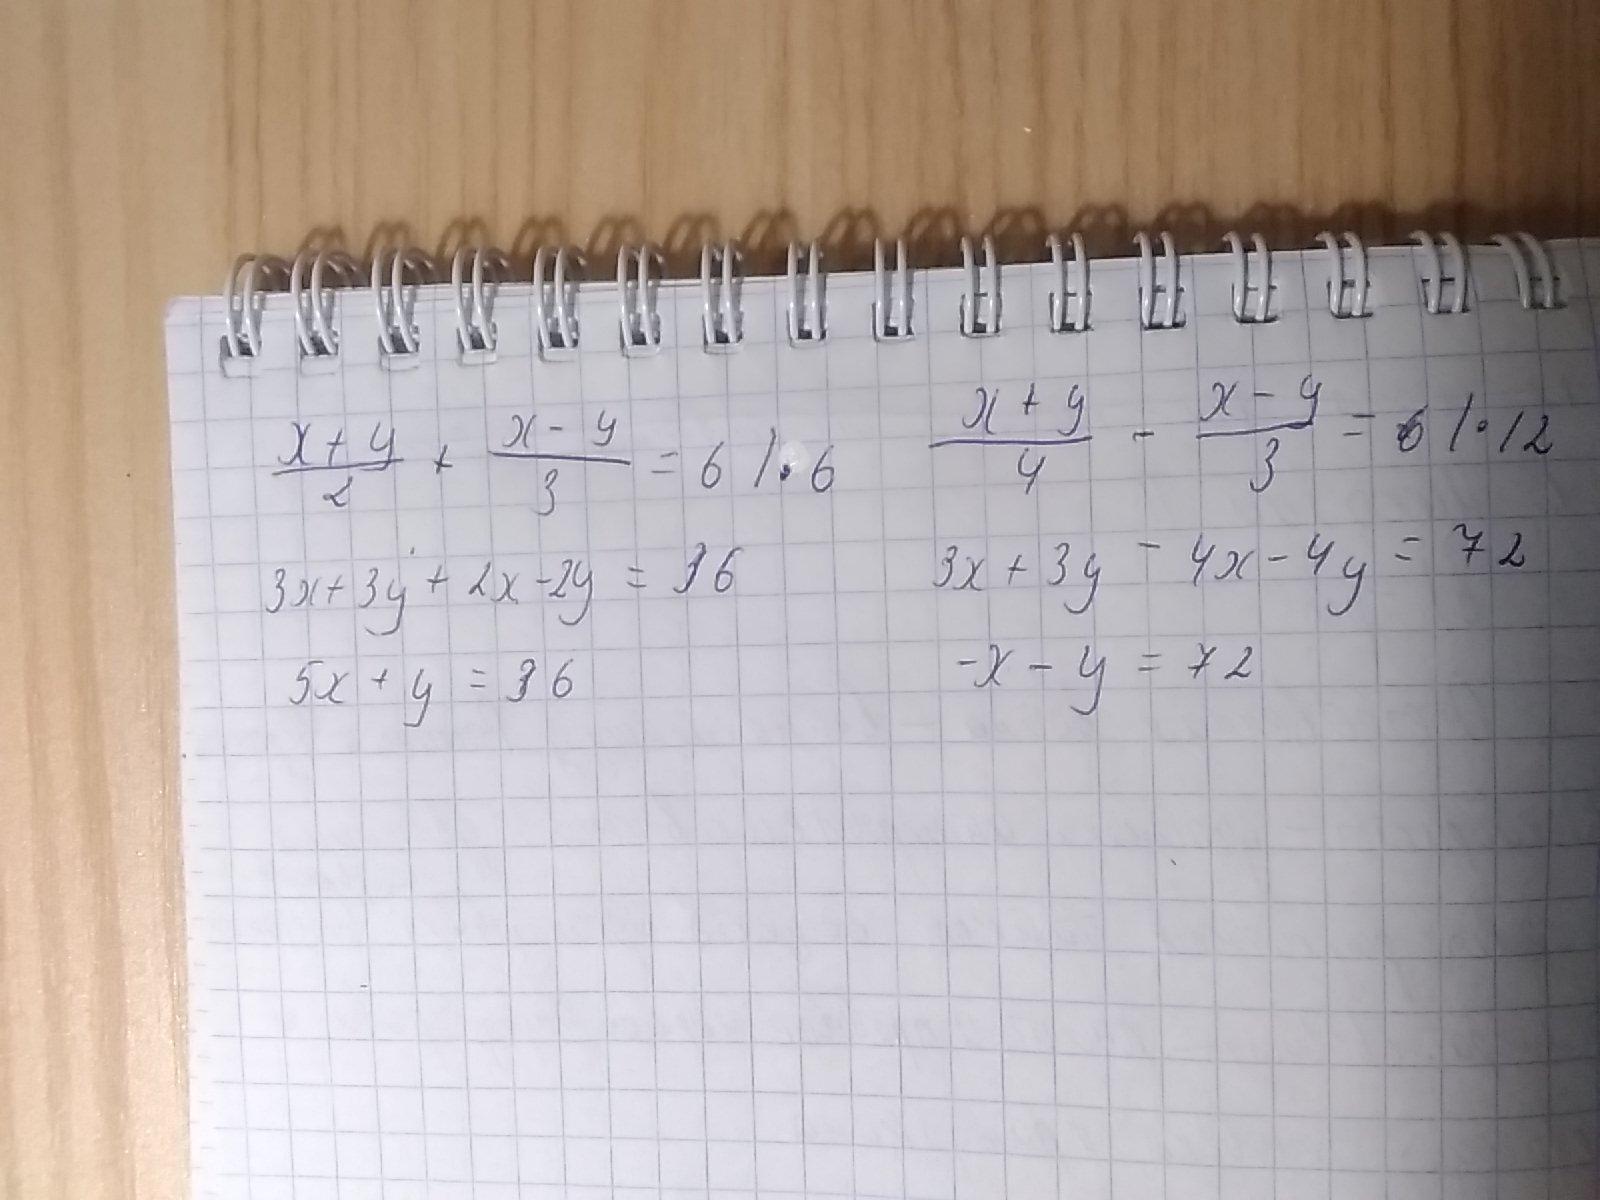 x+y/2 + x-y/3 = 6 /·6
3x+3y+2x-2y = 36
5x+y = 36
x+y/4 - x-y/3 = 6 /·12
3x+3y - 4x-4y = 72
-x-y = 72